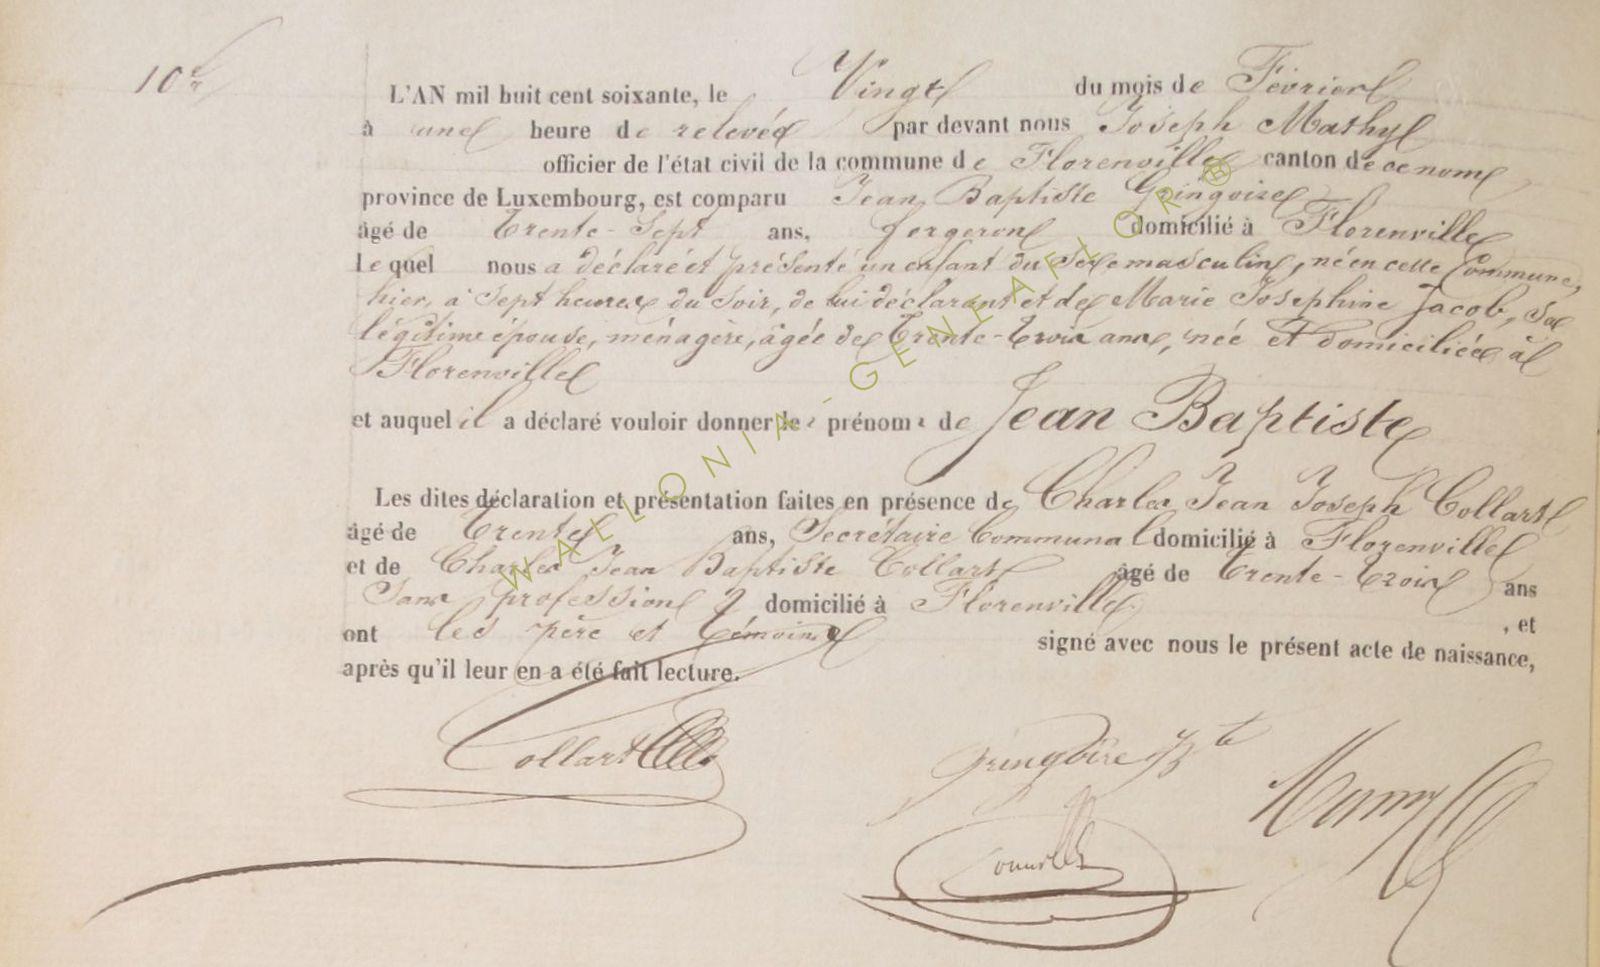 10e
L'AN mil huit cent soixante, le Vingt du mois de Février
à une heure de relevée par devant nous Joseph Mathy
officier de l'état civil de la commune de Florenville canton de ce nom
province de Luxembourg, est comparu Jean Baptiste Gringoire
âgé de Trente-Sept ans, forgeron domicilié à Florenville
Lequel nous a déclaré et présenté un enfant du sexe masculin, né en cette Commune,
hier, à Sept heures du soir, de lui déclarant et de Marie Josephine Jacob, sa
légitime épouse, ménagère, âgée de Trente-trois ans, née et domiciliée à
Florenville
et auquel il a déclaré vouloir donner les prénoms de Jean Baptiste
Les dites déclaration et présentation faites en présence de Charles Jean Joseph Collart
âgé de Trente ans, Secrétaire Communal domicilié à Florenville
et de Charles Jean Baptiste Collart âgé de Trente-trois ans
Sans profession domicilié à Florenville
, et
ont les père et témoins signé avec nous le présent acte de naissance,
après qu'il leur en a été fait lecture.
Collart
Gringoire Jbte
WALLONIA-GENEAFLOR®